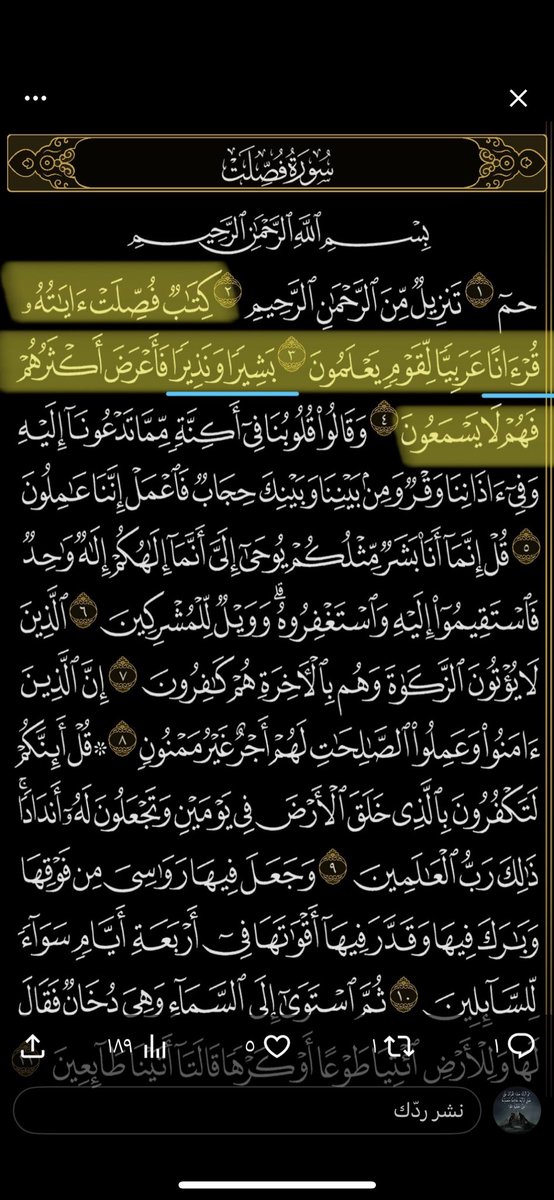 سُورَةُ فُصِّلَتْ
بِسْمِ ٱللَّهِ ٱلرَّحْمَٰنِ ٱلرَّحِيمِ
حمٓ ١ تَنزِيلٌ مِّنَ ٱلرَّحْمَٰنِ ٱلرَّحِيمِ ٢ كِتَٰبٌ فُصِّلَتْ ءَايَٰتُهُۥ
قُرْءَانًا عَرَبِيًّا لِّقَوْمٍ يَعْلَمُونَ ٣ بَشِيرًا وَنَذِيرًا فَأَعْرَضَ أَكْثَرُهُمْ
فَهُمْ لَا يَسْمَعُونَ ٤ وَقَالُوا۟ قُلُوبُنَا فِىٓ أَكِنَّةٍ مِّمَّا تَدْعُونَآ إِلَيْهِ
وَفِىٓ ءَاذَانِنَا وَقْرٌ وَمِنۢ بَيْنِنَا وَبَيْنِكَ حِجَابٌ فَٱعْمَلْ إِنَّنَا عَٰمِلُونَ
٥ قُلْ إِنَّمَآ أَنَا۠ بَشَرٌ مِّثْلُكُمْ يُوحَىٰٓ إِلَىَّ أَنَّمَآ إِلَٰهُكُمْ إِلَٰهٌ وَٰحِدٌ
فَٱسْتَقِيمُوٓا۟ إِلَيْهِ وَٱسْتَغْفِرُوهُ ۗ وَوَيْلٌ لِّلْمُشْرِكِينَ ٦ ٱلَّذِينَ
لَا يُؤْتُونَ ٱلزَّكَوٰةَ وَهُم بِٱلْءَاخِرَةِ هُمْ كَٰفِرُونَ ٧ إِنَّ ٱلَّذِينَ
ءَامَنُوا۟ وَعَمِلُوا۟ ٱلصَّٰلِحَٰتِ لَهُمْ أَجْرٌ غَيْرُ مَمْنُونٍ ٨ ۞ قُلْ أَئِنَّكُمْ
لَتَكْفُرُونَ بِٱلَّذِى خَلَقَ ٱلْأَرْضَ فِى يَوْمَيْنِ وَتَجْعَلُونَ لَهُۥٓ أَندَادًا ۚ
ذَٰلِكَ رَبُّ ٱلْعَٰلَمِينَ ٩ وَجَعَلَ فِيهَا رَوَٰسِىَ مِن فَوْقِهَا
وَبَٰرَكَ فِيهَا وَقَدَّرَ فِيهَآ أَقْوَٰتَهَا فِىٓ أَرْبَعَةِ أَيَّامٍ سَوَآءً
لِّلسَّآئِلِينَ ١٠ ثُمَّ ٱسْتَوَىٰٓ إِلَى ٱلسَّمَآءِ وَهِىَ دُخَانٌ فَقَالَ
لَهَا وَلِلْأَرْضِ ٱئْتِيَا طَوْعًا أَوْ كَرْهًا قَالَتَآ أَتَيْنَا طَآئِعِينَ ١١
١ ١ ٥ ١٨٩
نشر ردّك